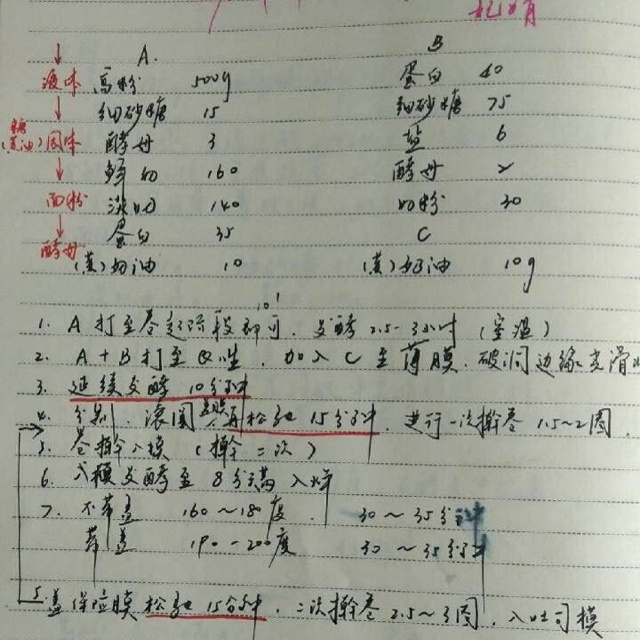 A. B
液体 高粉 500g 蛋白 40
细砂糖 15 细砂糖 75
糖
(黄油)固体 酵母 3 盐 6
鲜奶 160 酵母 2
面粉 淡奶 140 奶粉 30
蛋白 35 C
酵母 (黄)奶油 10 (黄)奶油 10g
10'
1. A打至卷起阶段即可,发酵2.5-3小时(室温)
2. A+B打至Q性,加入C至薄膜,破洞边缘光滑
3. 延续发酵10分钟
4. 分割,滚圆,松弛15分钟,进行一次擀卷1.5~2圈,
5. 卷擀入模(擀二次)
6. 入模发酵至8分满入炉
7. 不带盖 160~180度, 30~35分钟
带盖 190-200度 30~35分钟
5. 盖保险膜松弛15分钟,二次擀卷2.5~3圈,入吐司模